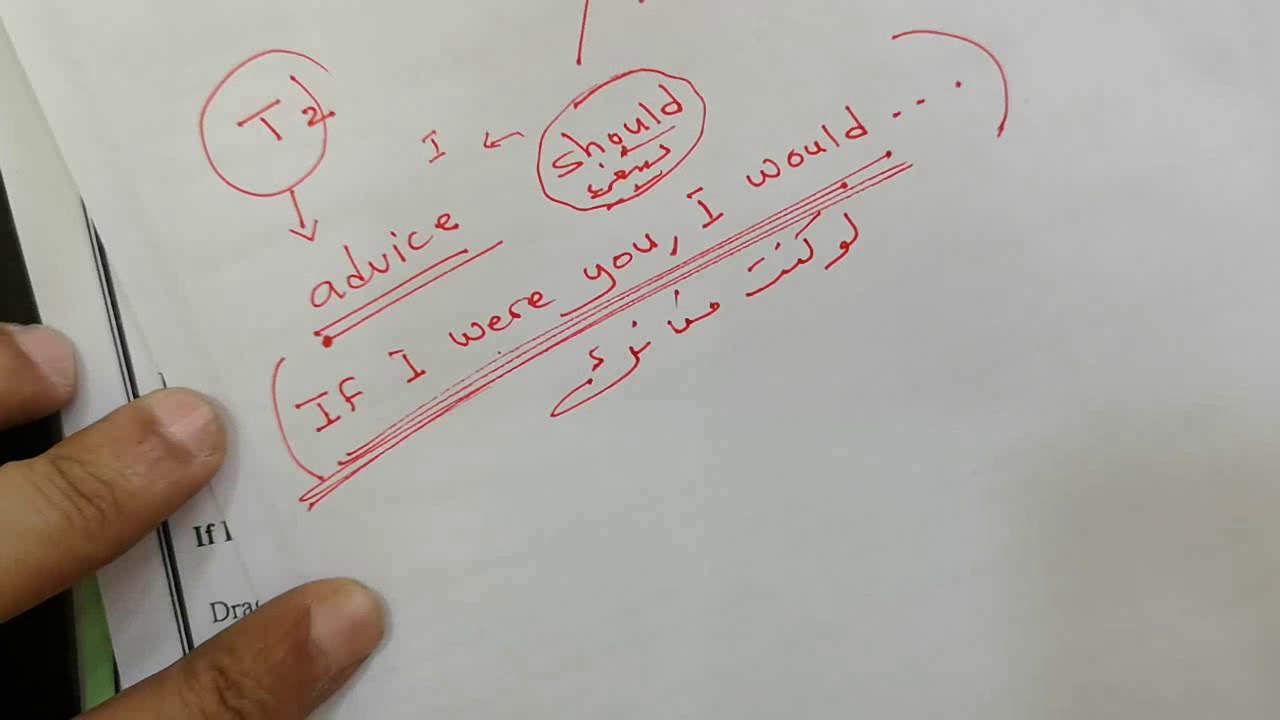 T2
I ← should
ينبغي
advice
If I were you, I would ...
لو كنت مكانك
If I
Dra